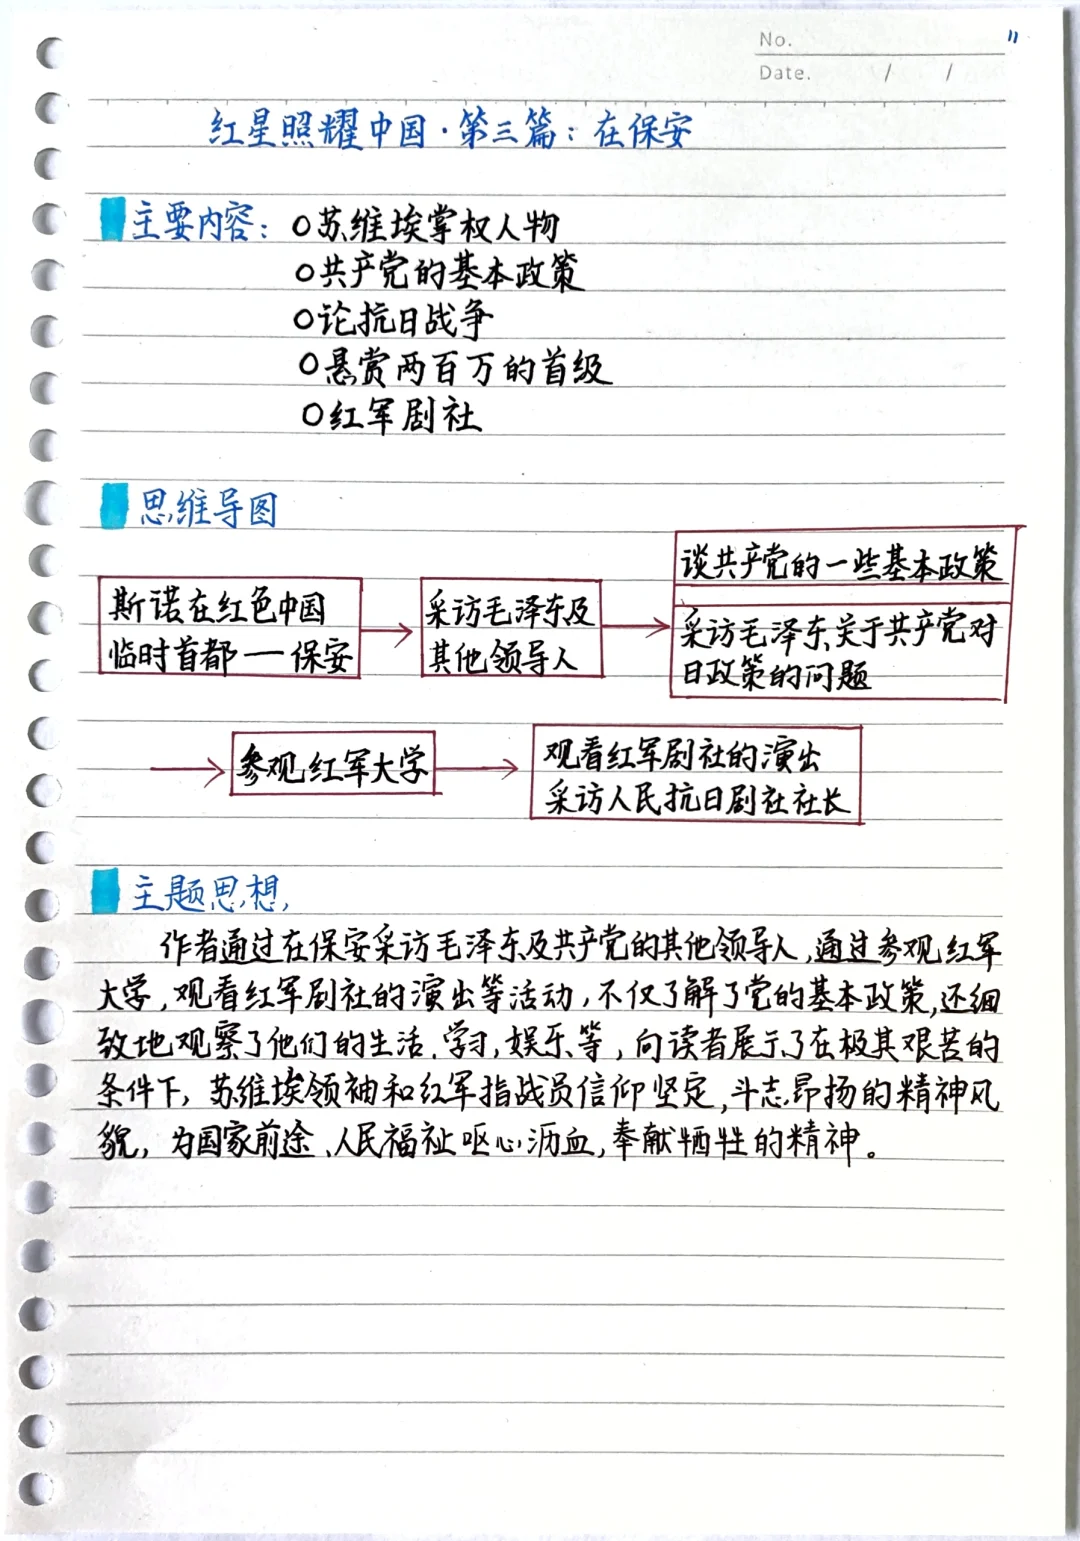 No.
"
Date. / /
红星照耀中国·第三篇：在保安
主要内容：○苏维埃掌权人物
○共产党的基本政策
○论抗日战争
○悬赏两百万的首级
○红军剧社
思维导图
斯诺在红色中国
临时首都一保安
采访毛泽东及
其他领导人
谈共产党的一些基本政策
采访毛泽东关于共产党对
日政策的问题
参观红军大学
观看红军剧社的演出
采访人民抗日剧社社长
主题思想，
作者通过在保安采访毛泽东及共产党的其他领导人，通过参观红军
大学，观看红军剧社的演出等活动，不仅了解了党的基本政策，还细
致地观察了他们的生活、学习，娱乐等，向读者展示了在极其艰苦的
条件下，苏维埃领袖和红军指战员信仰坚定，斗志昂扬的精神风
貌，为国家前途、人民福祉呕心沥血，奉献牺牲的精神。